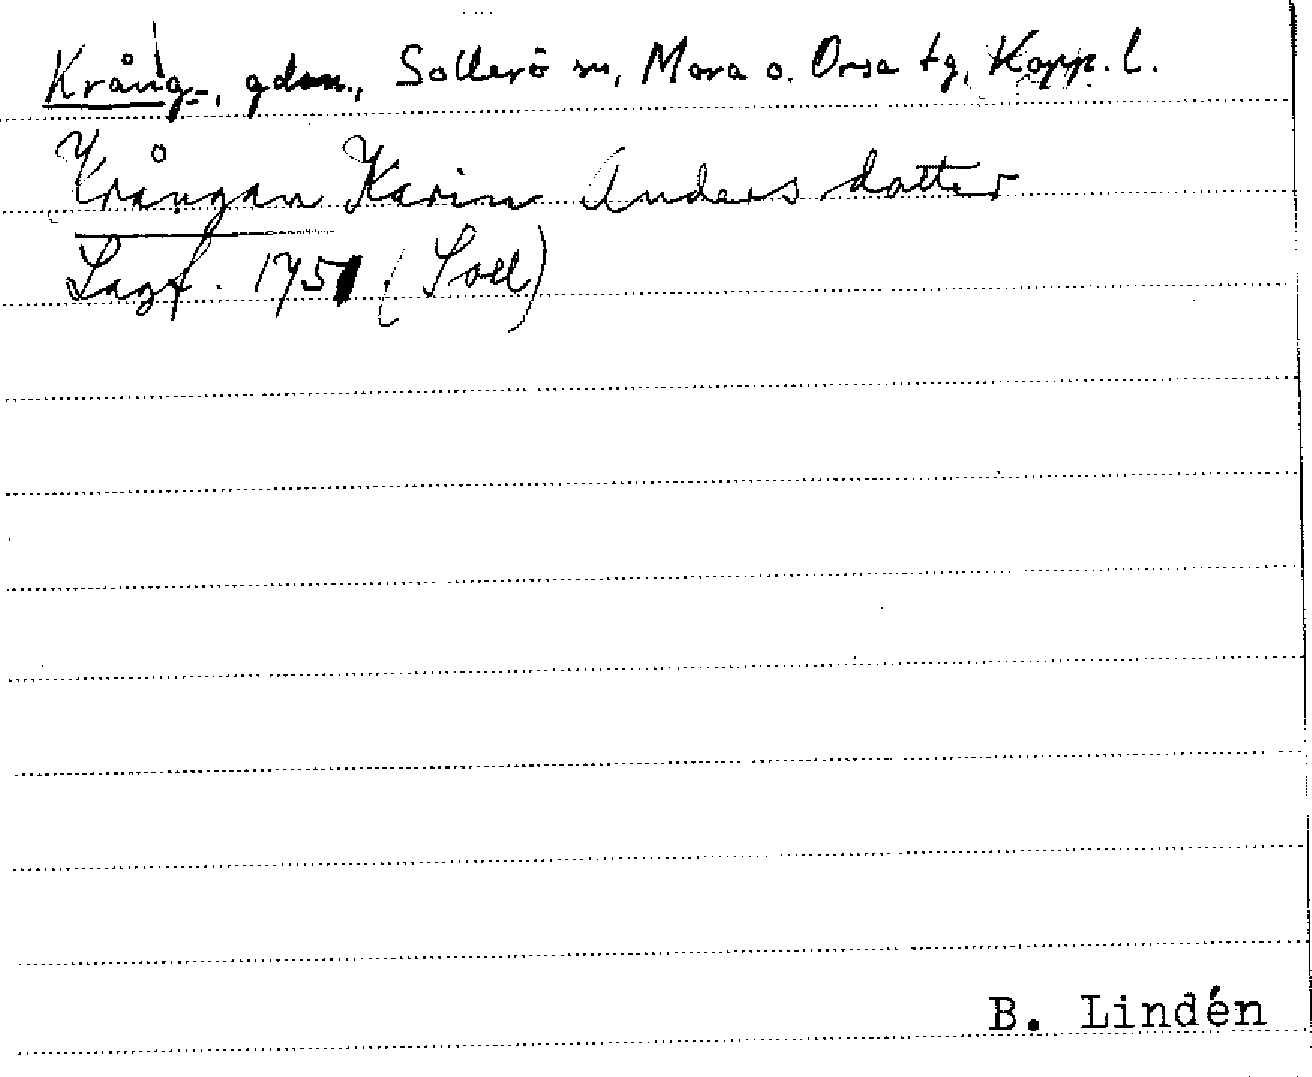 Krång-, gdsn., Sollerö sn, Mora o. Orsa tg, Kopp. l.
Krångan Karin Anders dotter
Lagf. 1751 (Soll)
B. Lindén